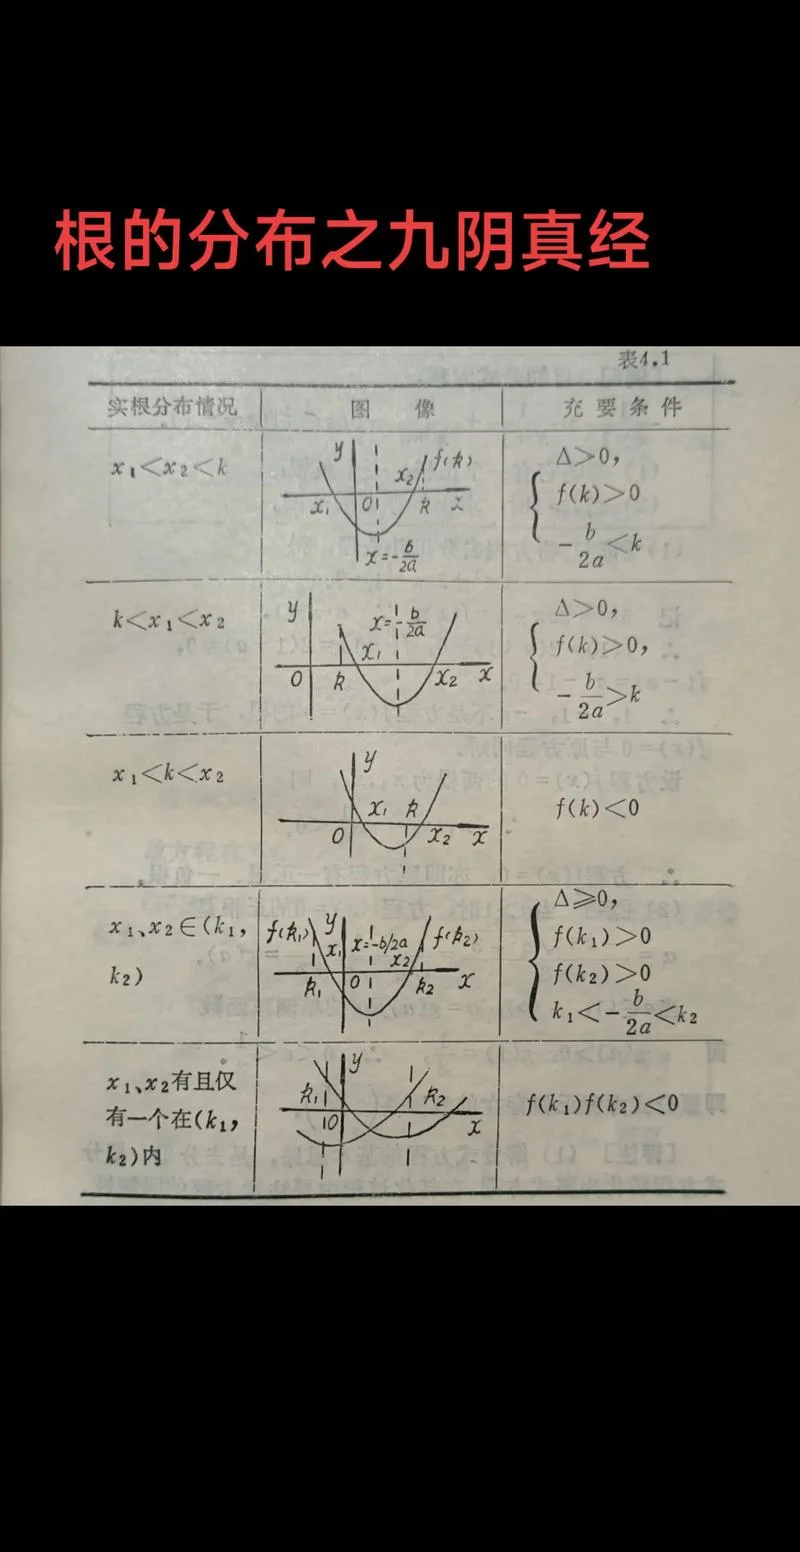 根的分布之九阴真经
表4.1
实根分布情况
图 像
充 要 条 件
x₁<x₂<k
y
f(k)
x₂
x₁
O
k
x
x=-b/2a
Δ>0,
f(k)>0
-b/2a<k
k<x₁<x₂
y
x=-b/2a
x₁
O
k
x₂
x
Δ>0,
f(k)>0,
-b/2a>k
x₁<k<x₂
y
x₁
k
O
x₂
x
f(k)<0
x₁、x₂∈(k₁,
k₂)
f(k₁)
y
x=-b/2a
f(k₂)
x₁
x₂
k₁
O
k₂
x
Δ⩾0,
f(k₁)>0
f(k₂)>0
k₁<-b/2a<k₂
x₁、x₂有且仅
有一个在(k₁,
k₂)内
y
k₁
k₂
O
x
f(k₁)f(k₂)<0